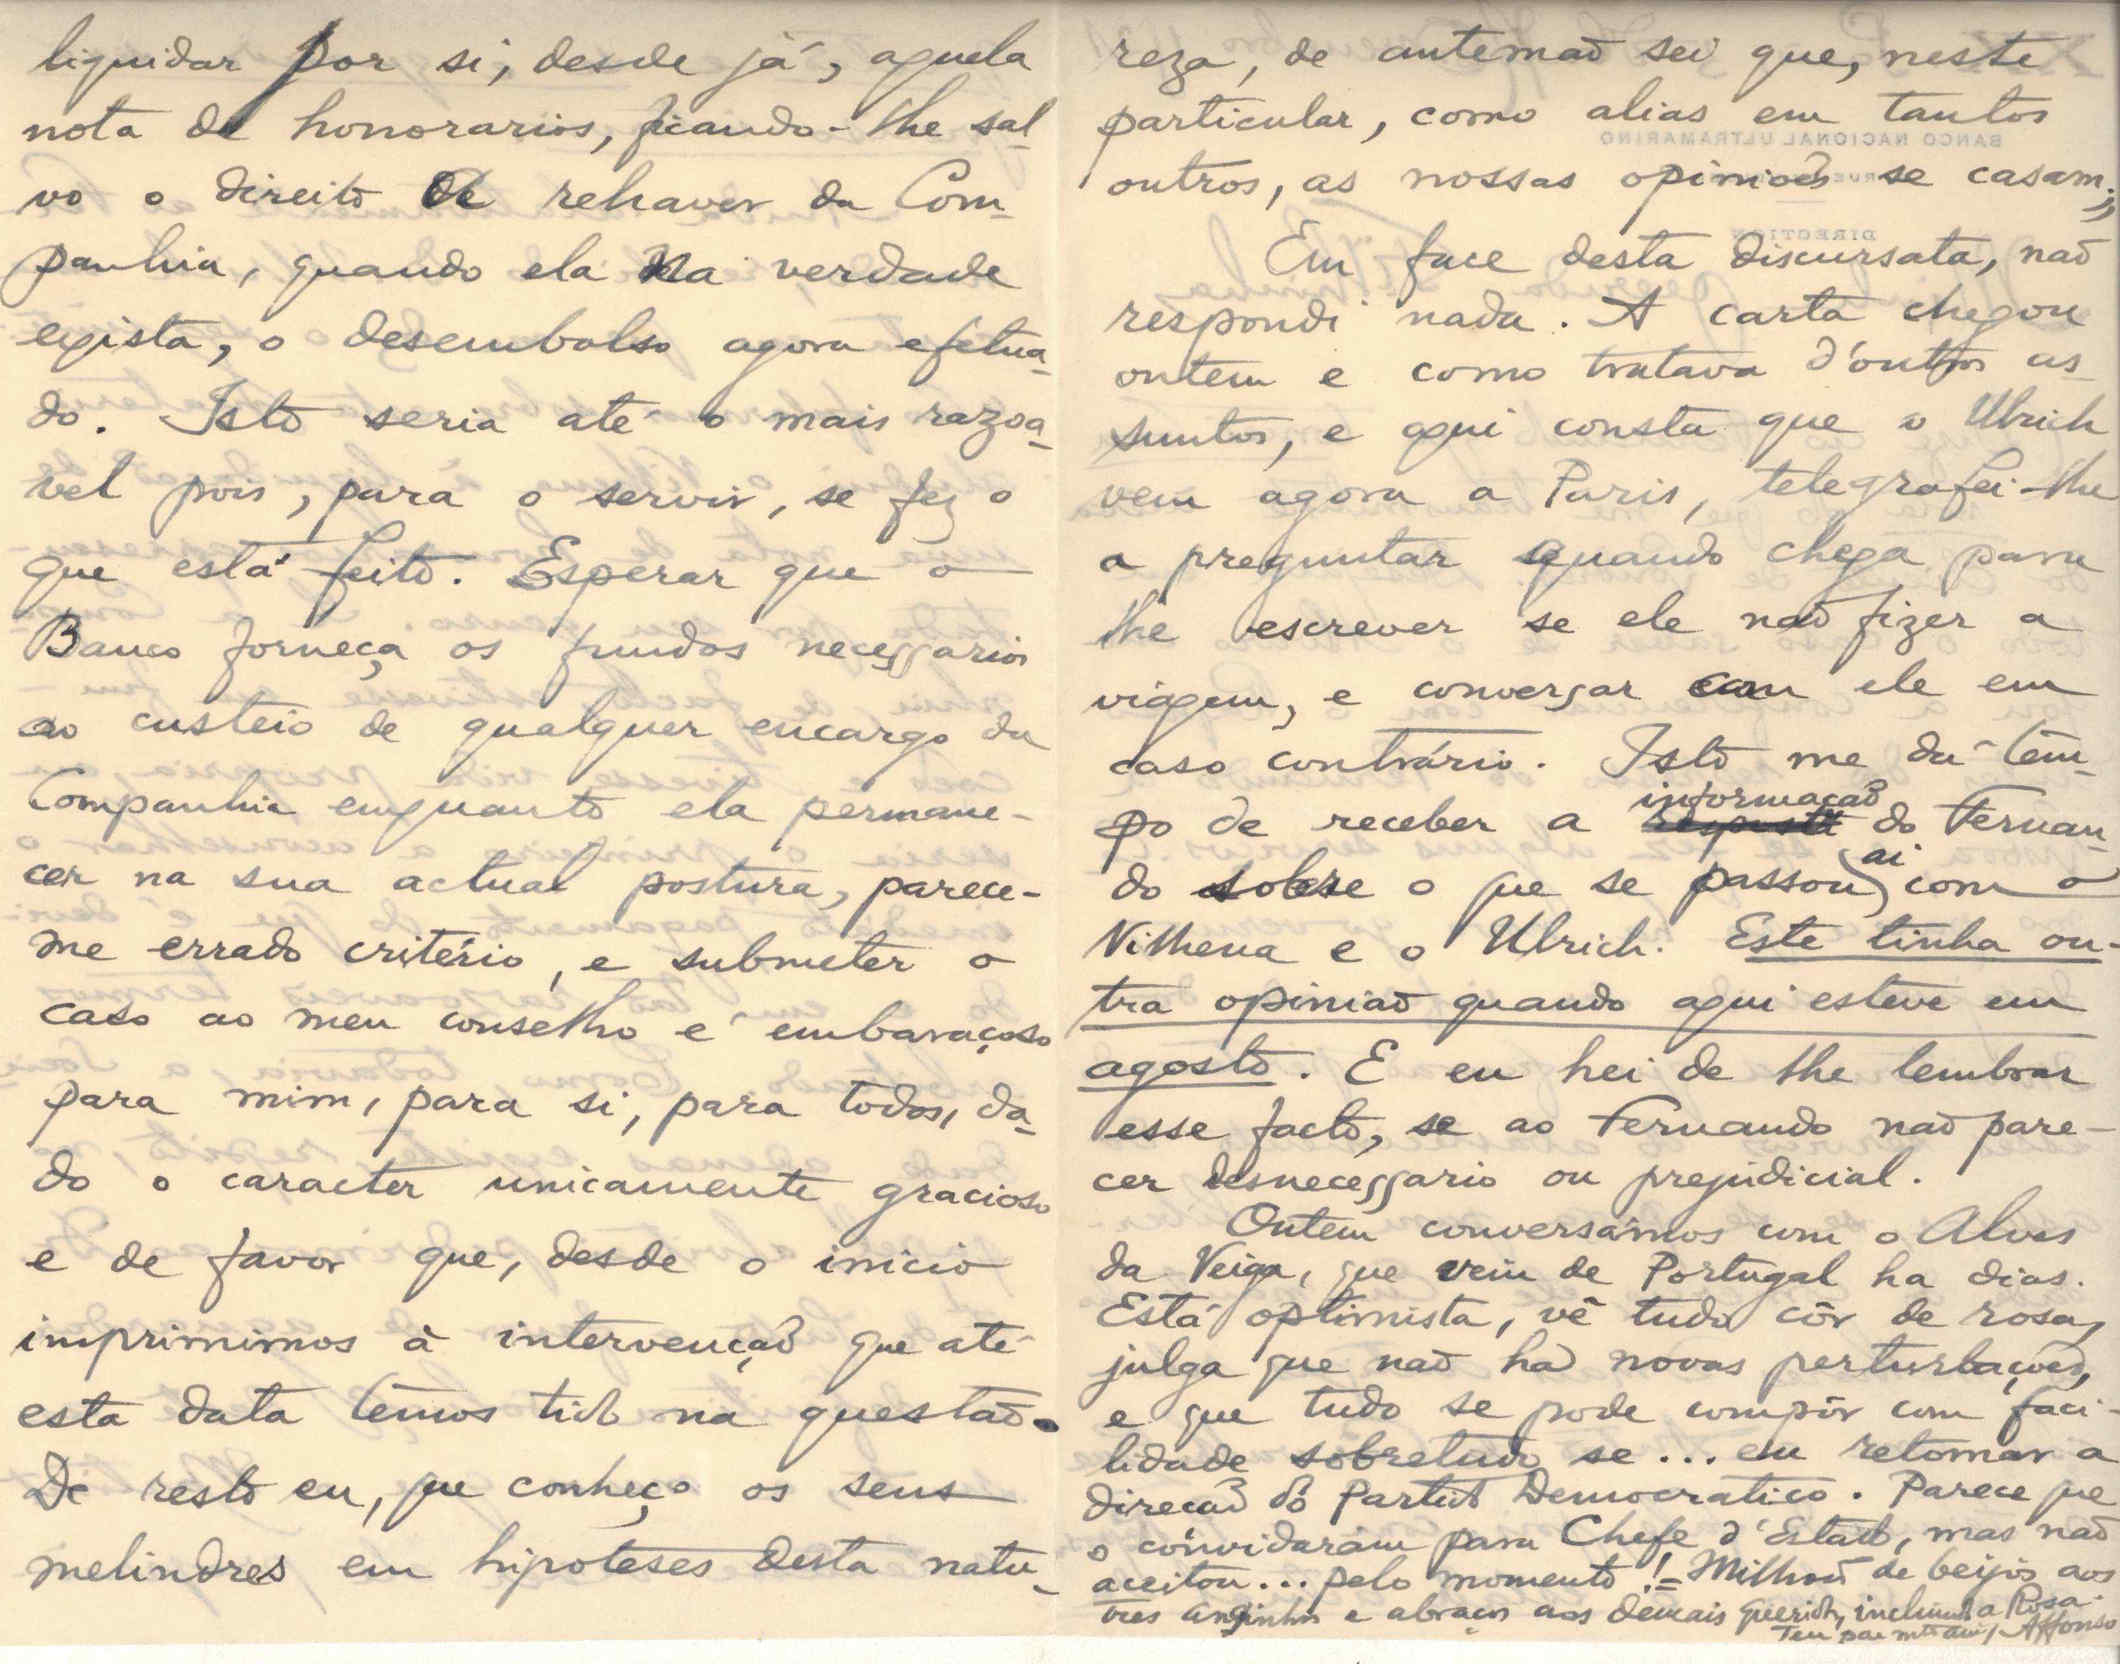 liquidar por si, desde já, aquela
nota de honorarios, ficando-lhe sal-
vo o direito de rehaver da Com-
panhia, quando ela na verdade
exista, o desembolso agora efetua-
do. Isto seria até o mais razoa-
vel pois, para o servir, se fez o
que está feito. Esperar que o
Banco forneça os fundos necessarios
ao custeio de qualquer encargo da
Companhia enquanto ela permane-
cer na sua actual postura, parece-
me errado critério, e submeter o
caso ao meu conselho é embaraçoso
para mim, para si, para todos, da-
do o caracter unicamente gracioso
e de favor que, desde o inicio
imprimimos à intervenção que até
esta data têmos tido na questão.
De resto eu, que conheço os seus
melindres em hipoteses desta natu-
reza, de antemão sei que, neste
particular, como alias em tantos
outros, as nossas opiniões se casam;,
Em face desta discursata, não
respondi nada. A carta chegou
ontem e como tratava d'outros as-
suntos, e aqui consta que o Ulrich
vem agora a Paris, telegrafei-lhe
a preguntar quando chega para
lhe escrever se ele não fizer a
viagem, e conversar com ele em
caso contrário. Isto me dá têm-
po de receber a informação do Fernan-
do sobre o que se passou aí com o
Vilhena e o Ulrich. Este tinha ou-
tra opinião quando aqui esteve em
agosto. E eu hei de lhe lembrar
esse facto, se ao Fernando não pare-
cer desnecessario ou prejudicial.
Ontem conversámos com o Alves
da Veiga, que veiu de Portugal ha dias.
Está optimista, vê tudo côr de rosa,
julga que não ha novas perturbações,
e que tudo se pode compôr com faci-
lidade sobretudo se... eu retomar a
direcão do Partido Democratico. Parece que
o convidaram para Chefe d'Estado, mas não
aceitou... pelo momento! = Milhões de beijos aos
tres anginhos e abraços aos demais queridos, incluindo a Rosa.
Teu pae mto am., Affonso
BANCO NACIONAL ULTRAMARINO
DIRECTION